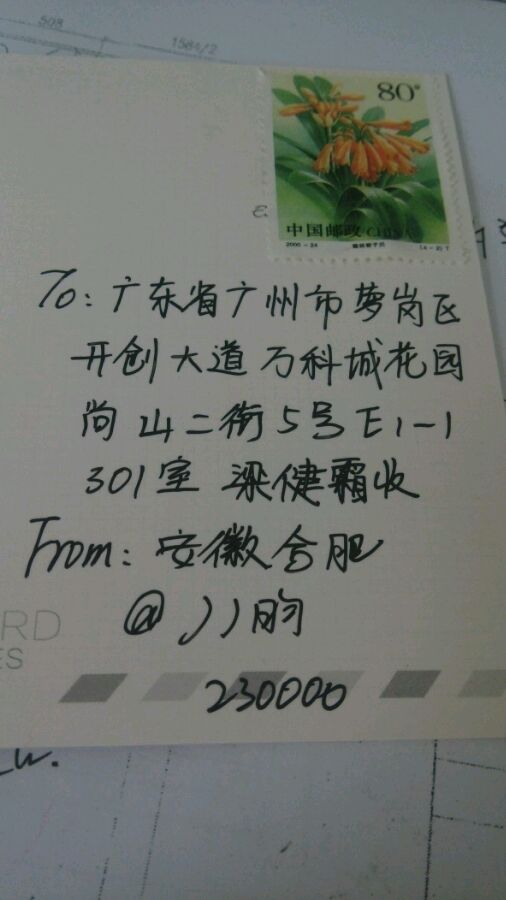 508
1584/2
80分
中国邮政 CHINA
2000-24
(4-2)T
To: 广东省广州市萝岗区
开创大道万科城花园
尚山二街5号E1-1
301室 梁健霸收
From: 安徽合肥
@川昀
230000
RD
ES